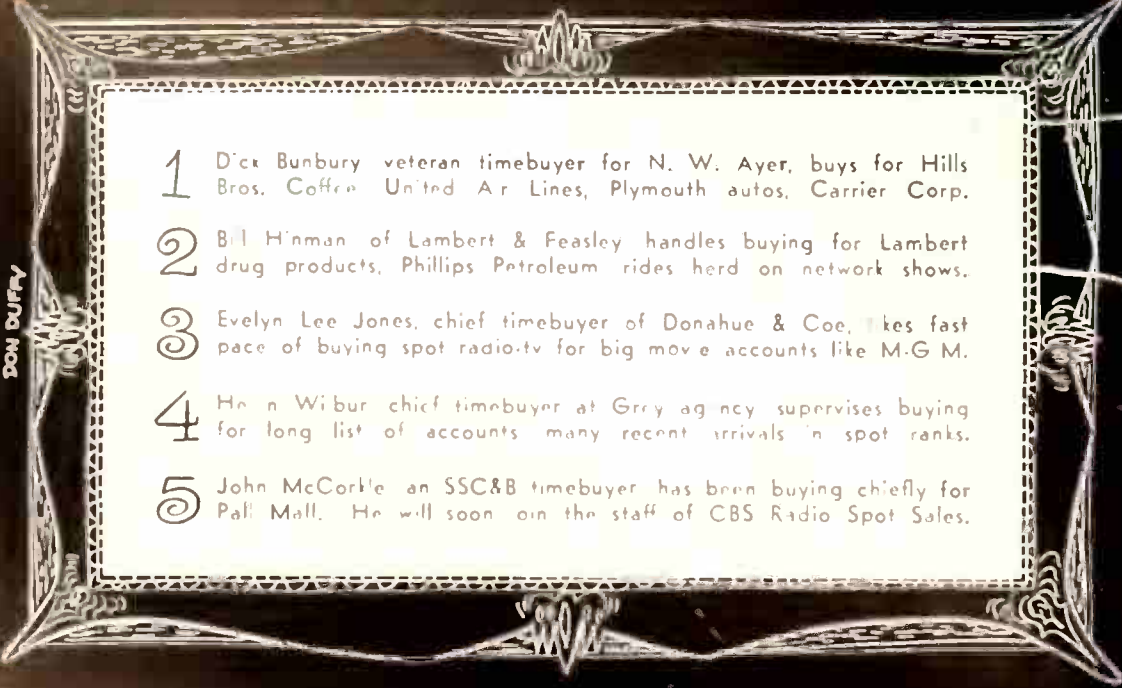 1 Dick Bunbury veteran timebuyer for N. W. Ayer, buys for Hills
Bros. Coffee United Air Lines, Plymouth autos, Carrier Corp.
2 Bill Hinman of Lambert & Feasley handles buying for Lambert
drug products, Phillips Petroleum rides herd on network shows.
3 Evelyn Lee Jones, chief timebuyer of Donahue & Coe, likes fast
pace of buying spot radio-tv for big movie accounts like M-G M.
4 Helen Wilbur chief timebuyer at Grey agency supervises buying
for long list of accounts many recent arrivals in spot ranks.
5 John McCorkle an SSC&B timebuyer has been buying chiefly for
Pall Mall. He will soon join the staff of CBS Radio Spot Sales.
DON DUFFY